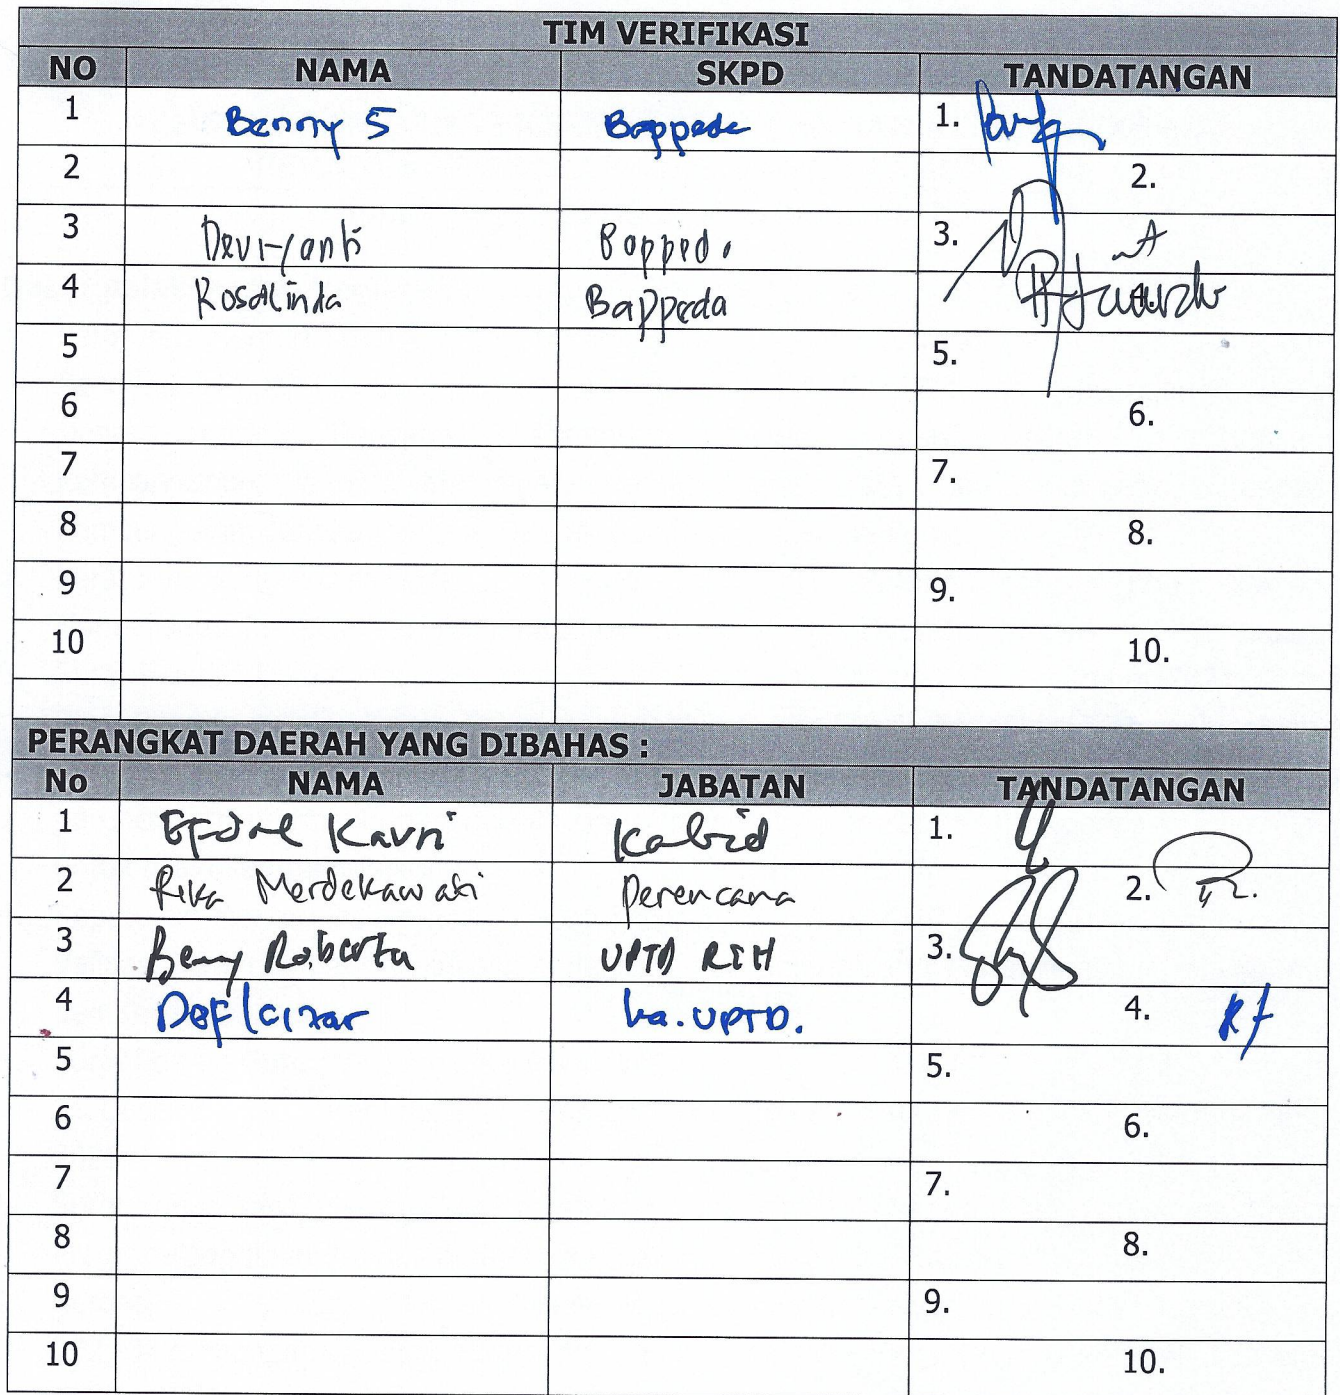 TIM VERIFIKASI
NO NAMA SKPD TANDATANGAN
1 Benny S Bappeda 1.
2 2.
3 Deviyanti Bappeda 3.
4 Rosalinda Bappeda 4.
5 5.
6 6.
7 7.
8 8.
9 9.
10 10.
PERANGKAT DAERAH YANG DIBAHAS :
No NAMA JABATAN TANDATANGAN
1 Kabid 1.
2 Rika Merdekawati Perencana 2.
3 Benny Roberta UPTD 3.
4 ka. UPTD. 4.
5 5.
6 6.
7 7.
8 8.
9 9.
10 10.